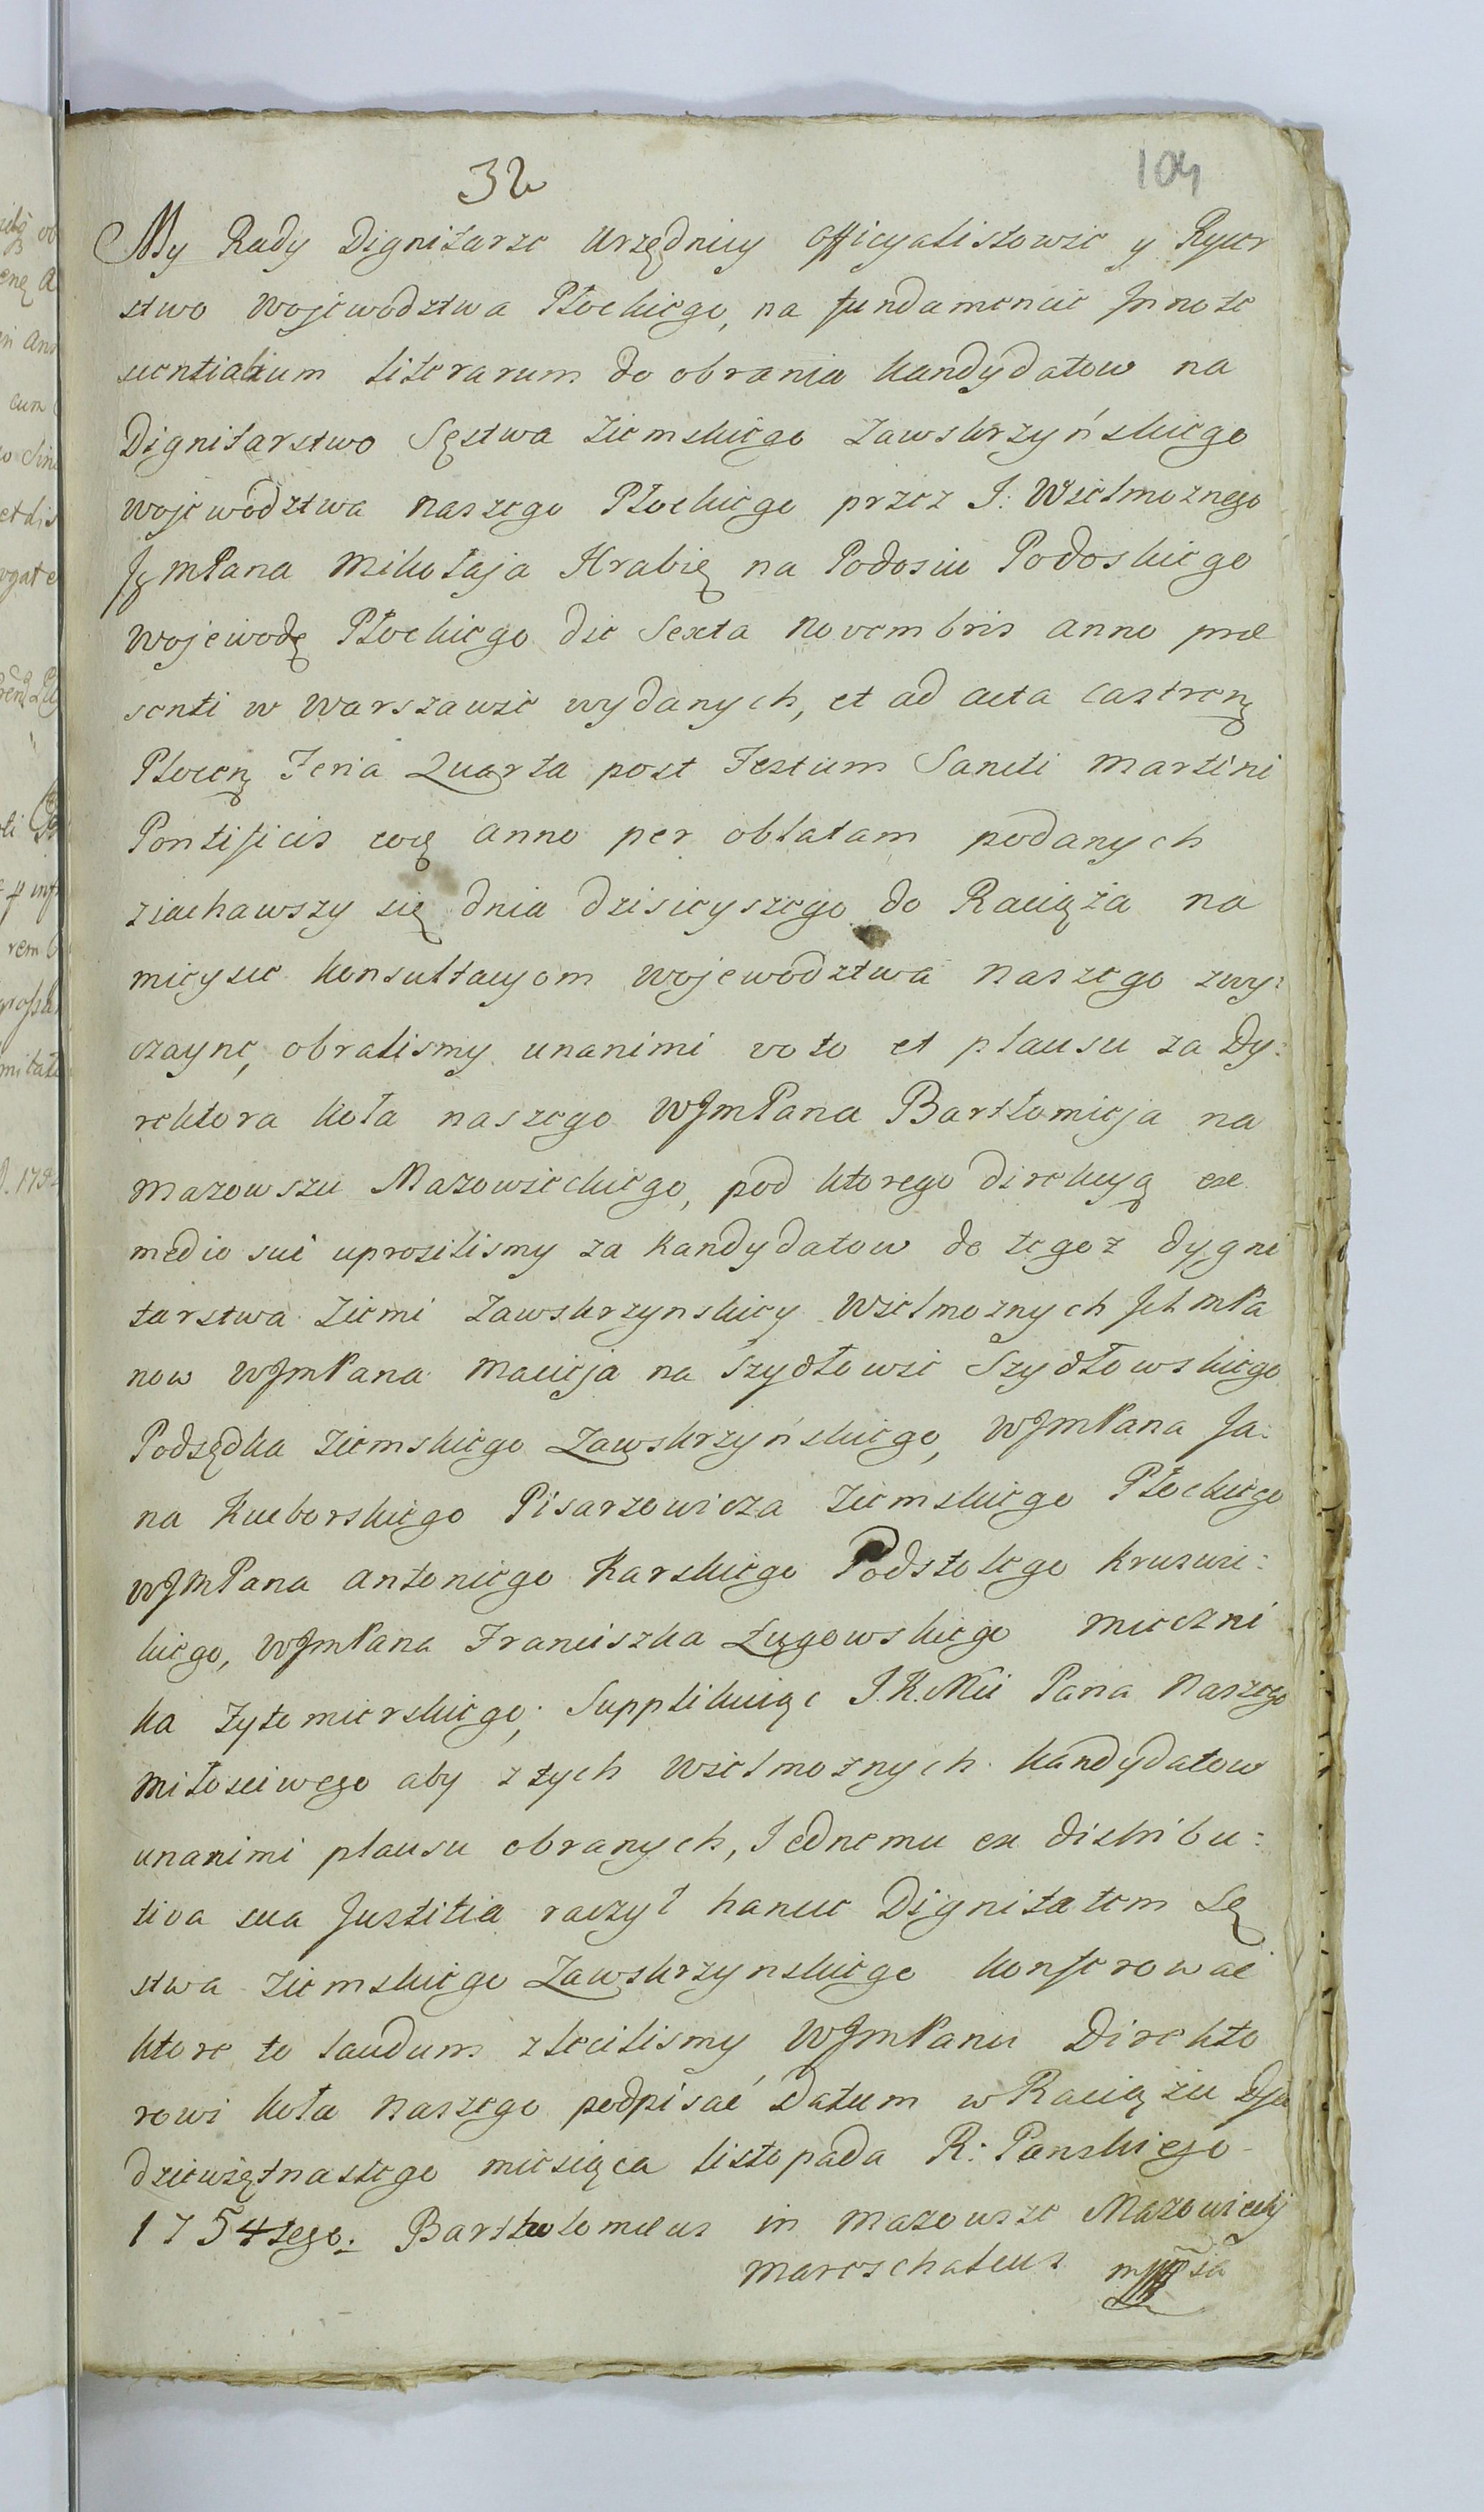 32
104
My Rady Dignitarze Urzędnicy officyalistowie y Rycer
stwo Wojewodztwa Płockiego, na fundamencie Jnnote
scentialium literarum do obrania kandydatow na
Dignitarstwo Sęstwa Ziemskiego Zawskrzyńskiego
Wojewodztwa Naszego Płockiego przez J: Wielmoznego
JgmPana Mikołaja Hrabię na Podosiu Podoskiego
Wojewodę Płockiego die Sexta Novembris anno præ
senti w Warszawie wydanych, et ad acta Castren
Plocen Feria Quarta post Festum Sancti Martini
Pontificis eoę anno per oblatam podanych
ziachawszy się dnia dzisieyszego do Raciąża na
mieysce konsultacyom Wojewodztwa Naszego zwy:
czayne, obralismy unanimi voto et plausu za Dy:
rektora koła naszego WJmPana Bartłomieja na
Mazowszu Mazowieckiego, pod ktorego direkcyą ex
medio sui uprosilismy za kandydatow do tegoz dygni
tarstwa Ziemi Zawskrzynskiey Wielmoznych JchmPa
now WJmPana Macieja na Szydłowie Szydłowskiego
Podsędka Ziemskiego Zawskrzyńskiego, WJmPana Ja:
na Kucborskiego Pisarzewicza Ziemskiego Płockiego
WJmPana Antoniego Karskiego Podstolego Kruszwi:
kiego, WJmPana Franciszka Ługowskiego Mieczni
ka Zytomierskiego; Supplikuiąc J.K.Mci Pana Naszego
Miłosciwego aby z tych Wielmoznych kandydatow
unanimi plausu obranych, Jednemu ex distribu:
tiva sua Justitia raczył hancce Dignitatem Sę
stwa Ziemskiego Zawskrzynskiego konferować
ktore to laudum zlecilismy WJmPanu Direkto
rowi koła Naszego podpisać Datum w Raciążu Dnia
dziewiętnastego miesiąca listopada R: Panskiego
1754tego. Bartholomeus in Mazowsze Mazowiecki
Mareschalcus